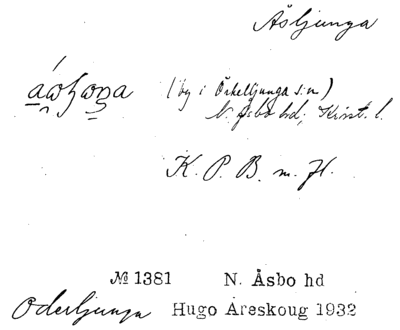 Åsljunga
(by i Örkelljunga s:n)
N. Åsbo hd; Krist. l.
K. P. B. m. fl.
№ 1381 N. Åsbo hd
Oderljunga Hugo Areskoug 1932